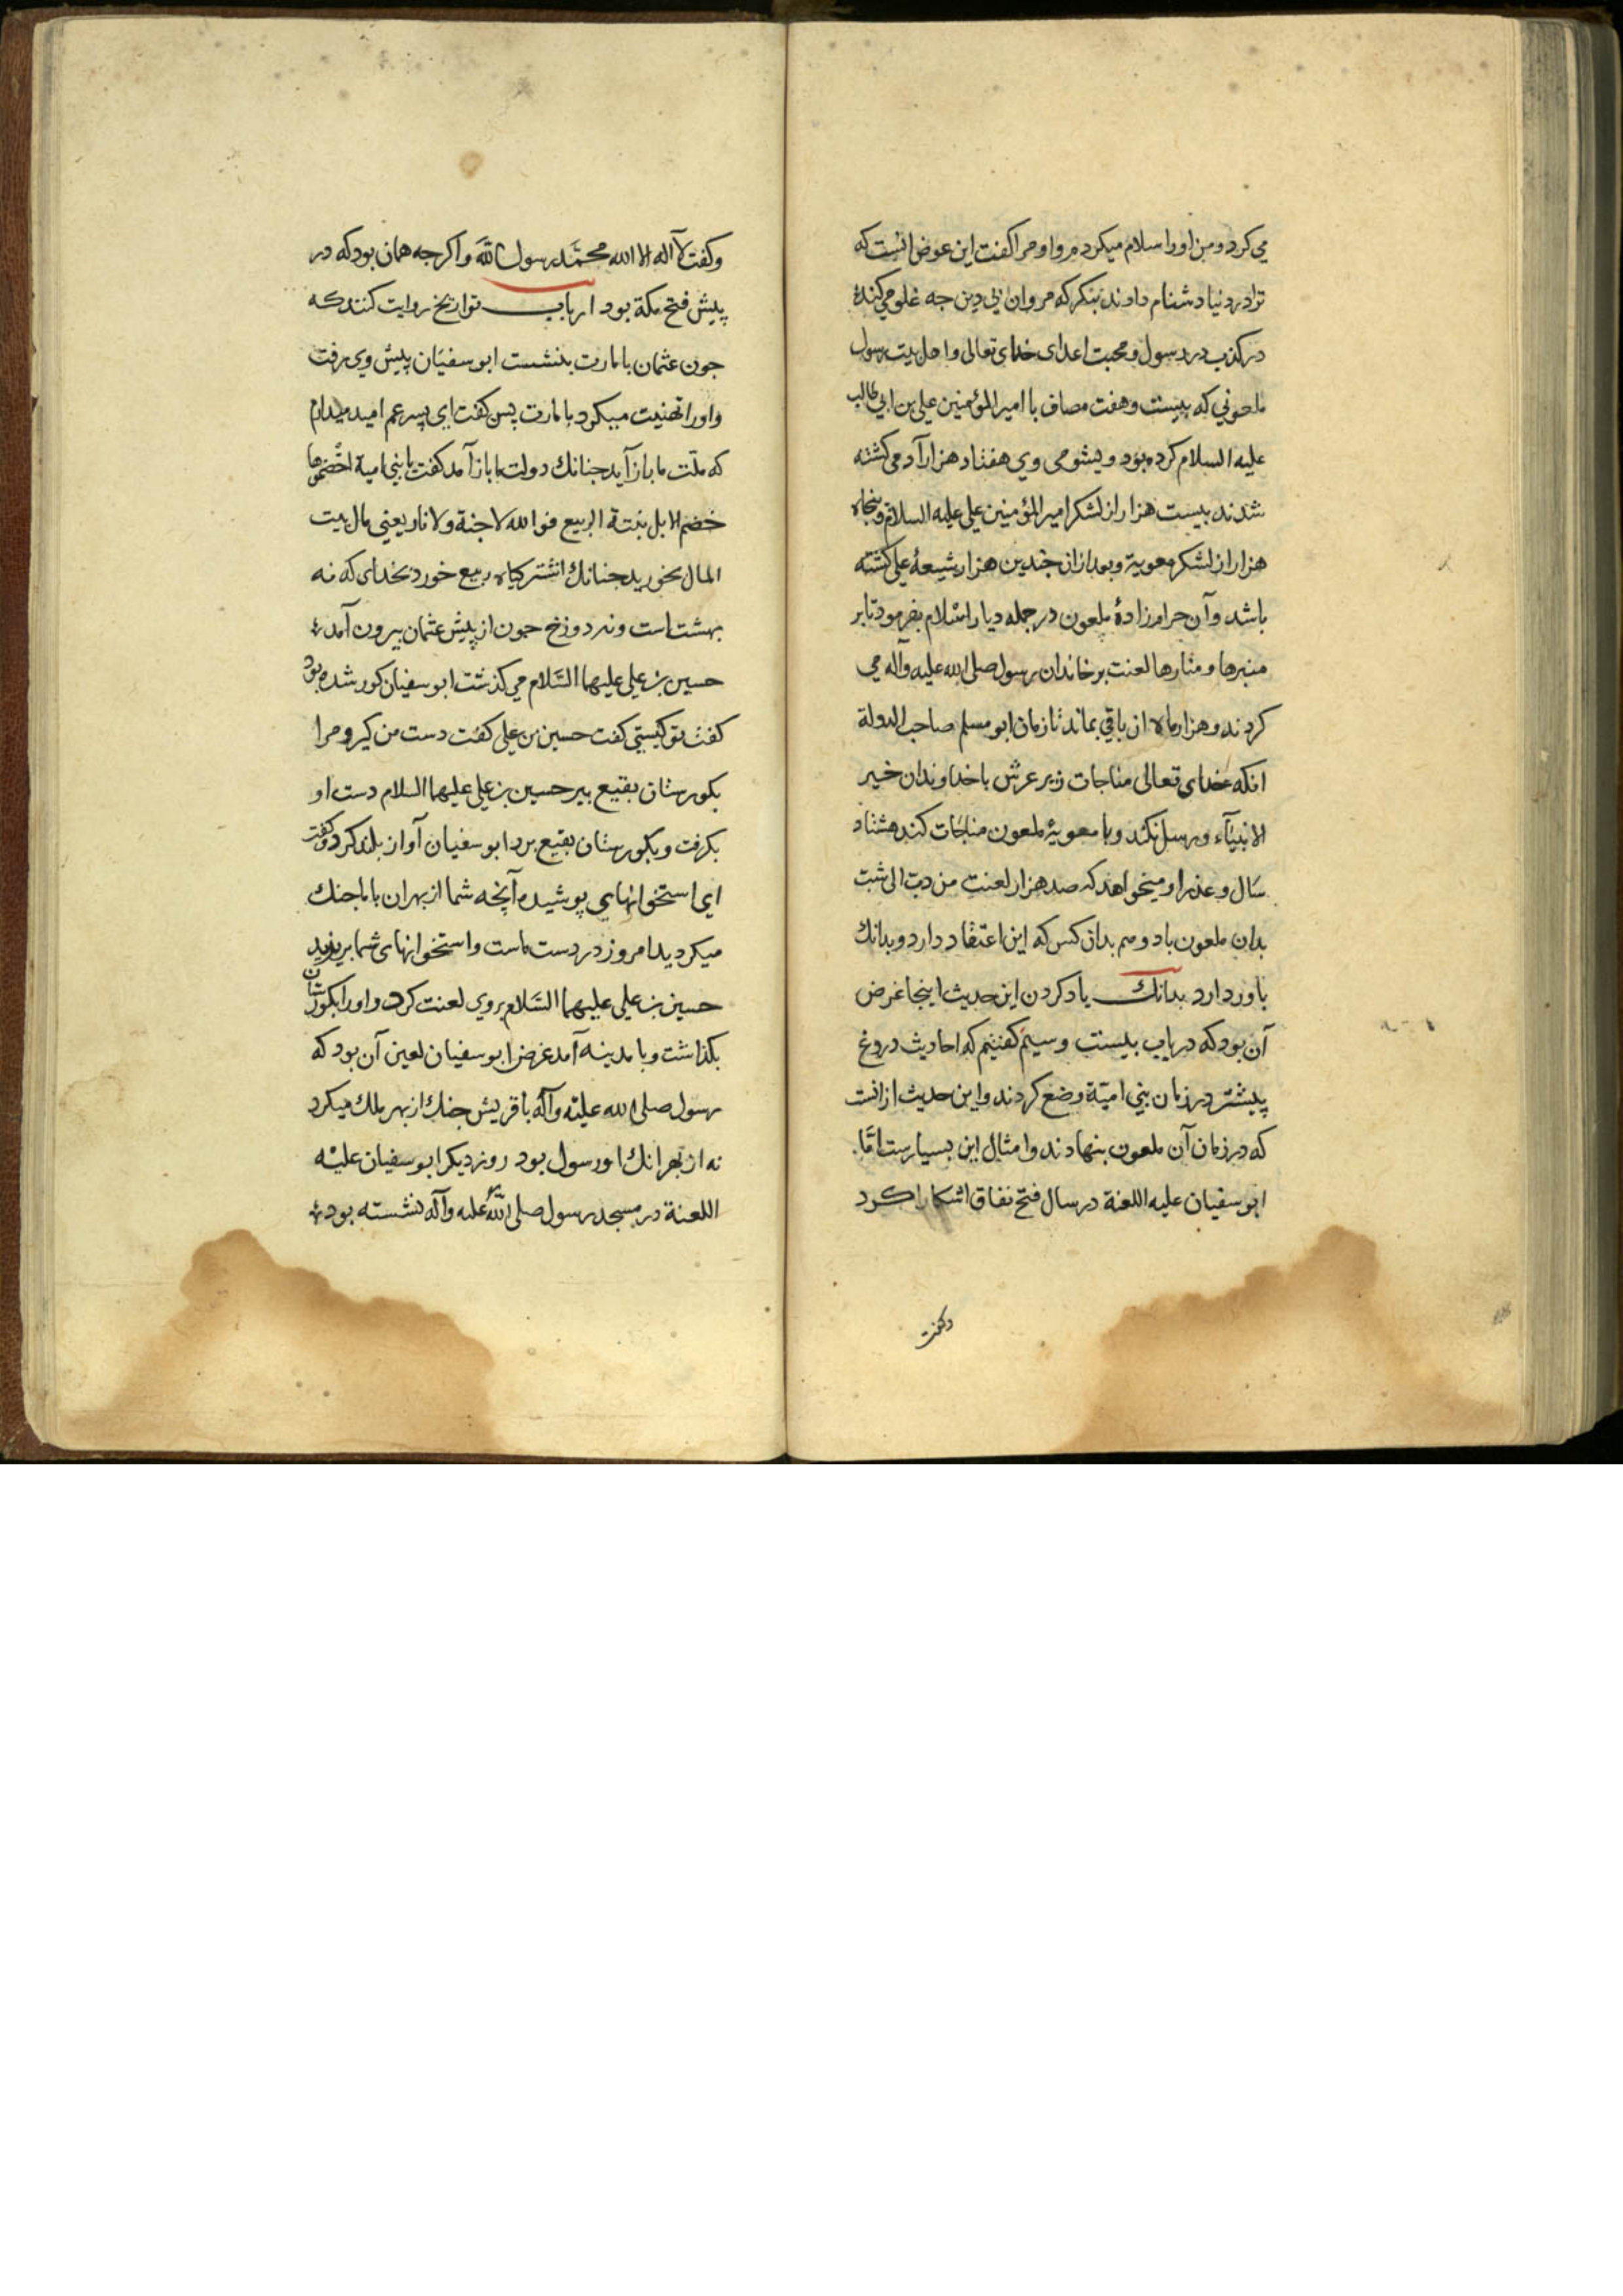 می کرد و من او را سلام میکردم و او مرا کفت این عوض انست که
ترا در دنیا دشنام دادند بنکر که مروان بی دین جه غلو می کند
در کذب در رسول و محبت اعدای خدای تعالی و اهل بیت رسول
ملعونی که بیست و هفت مصاف با امیر المؤمنین علی بن ابی طالب
علیه السلام کرده بود و بشومی وی هفتاد هزار آدمی کشته
شدند بیست هزار از لشکر امیر المؤمنین علی علیه السلام و پنجاه
هزار از لشکر معویة و بعد از ان چندین هزار شیعۀ علی کشته
باشد و آن حرامزادۀ ملعون در جمله دیار اسلام بفرمود تا بر
منبرها و منارها لعنت بر خاندان رسول صلی الله علیه وآله می
کردند و هزار ماه ان باقی بماند تا زمان ابو مسلم صاحب الدولة
انکه خدای تعالی مناجات زیر عرش با خداوندان خیر
الانبیآء و رسل نکند و با معویۀ ملعون مناجات کند هشتاد
سال و عذر او میخواهد که صد هزار لعنت من دب الی شب
بدان ملعون باد و هم بدان کس که این اعتقاد دارد و بدانک
باور دارد بدانک یاد کردن این حدیث اینجا غرض
آن بود که در باب بیست و سیم کفتیم که احادیث دروغ
پیشتر در زمان بنی امیّة وضع کردند و این حدیث از انست
که در زمان آن ملعون بنهادند و امثال این بسیارست امّا
ابو سفیان علیه اللعنة در سال فتح نفاق اشکارا کرد
وکفت
وکفت لا آله الا الله محمّد رسول الله و اکرجه همان بود که در
پیش فتح مکة بود ارباب تواریخ روایت کنند که
جون عثمان بامارت بنشست ابو سفیان پیش وی رفت
و او را تهنیت میکرد بامارت پس کفت ای پسر عم امید میدارم
که ملّت ما باز آید جنانك دولت ما باز آمد کفت یا بنی امیة اخضموها
خضم الابل نبتة الربیع فو الله لا جنة ولا نار یعنی مال بیت
المال بخورید جنانك اشتر کیاه ربیع خورد بخدای که نه
بهشت است و نه دوزخ جون از پیش عثمان بیرون آمد
حسین بن علی علیهما السّلام می کذشت ابو سفیان کور شده بود
کفت تو کیستی کفت حسین بن علی کفت دست من کیر و مرا
بکورستان بقیع ببر حسین بن علی علیهما السلام دست او
بکرفت و بکورستان بقیع برد ابو سفیان آواز بلند کرد و کفت
ای استخوانهای پوشیده آنچه شما از بهر ان با ما جنك
میکردید امروز در دست ماست و استخوانهای شما بریزید
حسین بن علی علیهما السّلام بروی لعنت کرد و او را بکورستان
بکذاشت و با مدینه آمد غرض ابو سفیان لعین آن بود که
رسول صلی الله علیه وآله با قریش جنك از بهر ملك میکرد
نه از بهر انك او رسول بود روز دیکر ابو سفیان علیه
اللعنة در مسجد رسول صلی الله علیه وآله نشسته بود